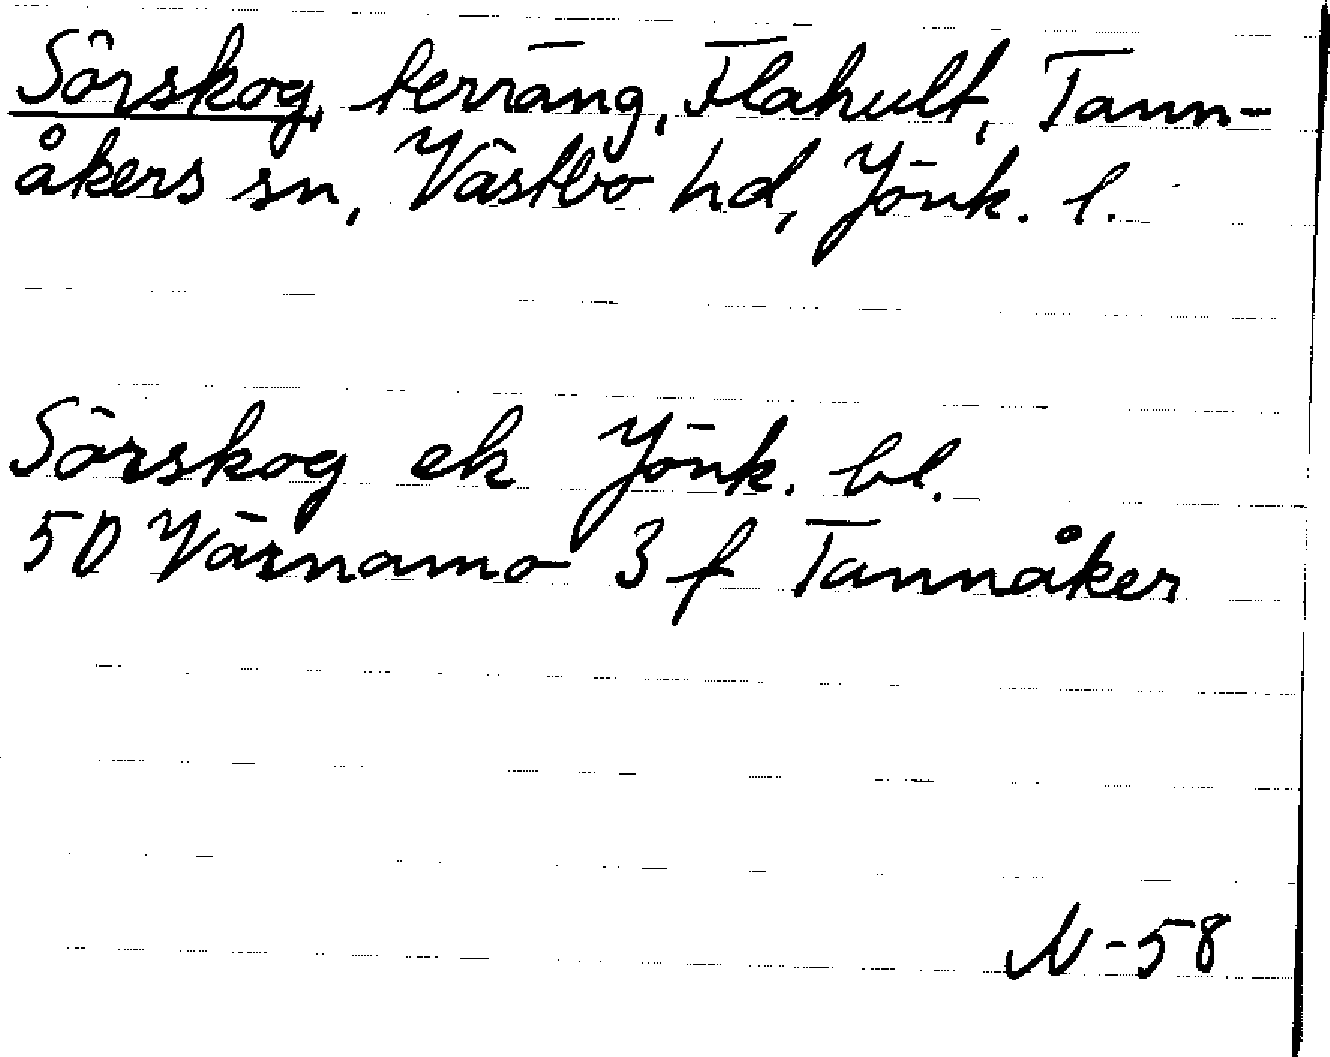 Sörskog, terräng, Flahult, Tann-
åkers sn, Västbo hd, Jönk. l.
Sörskog ek Jönk. bl.
5D Värnamo 3 f Tannåker
N-58